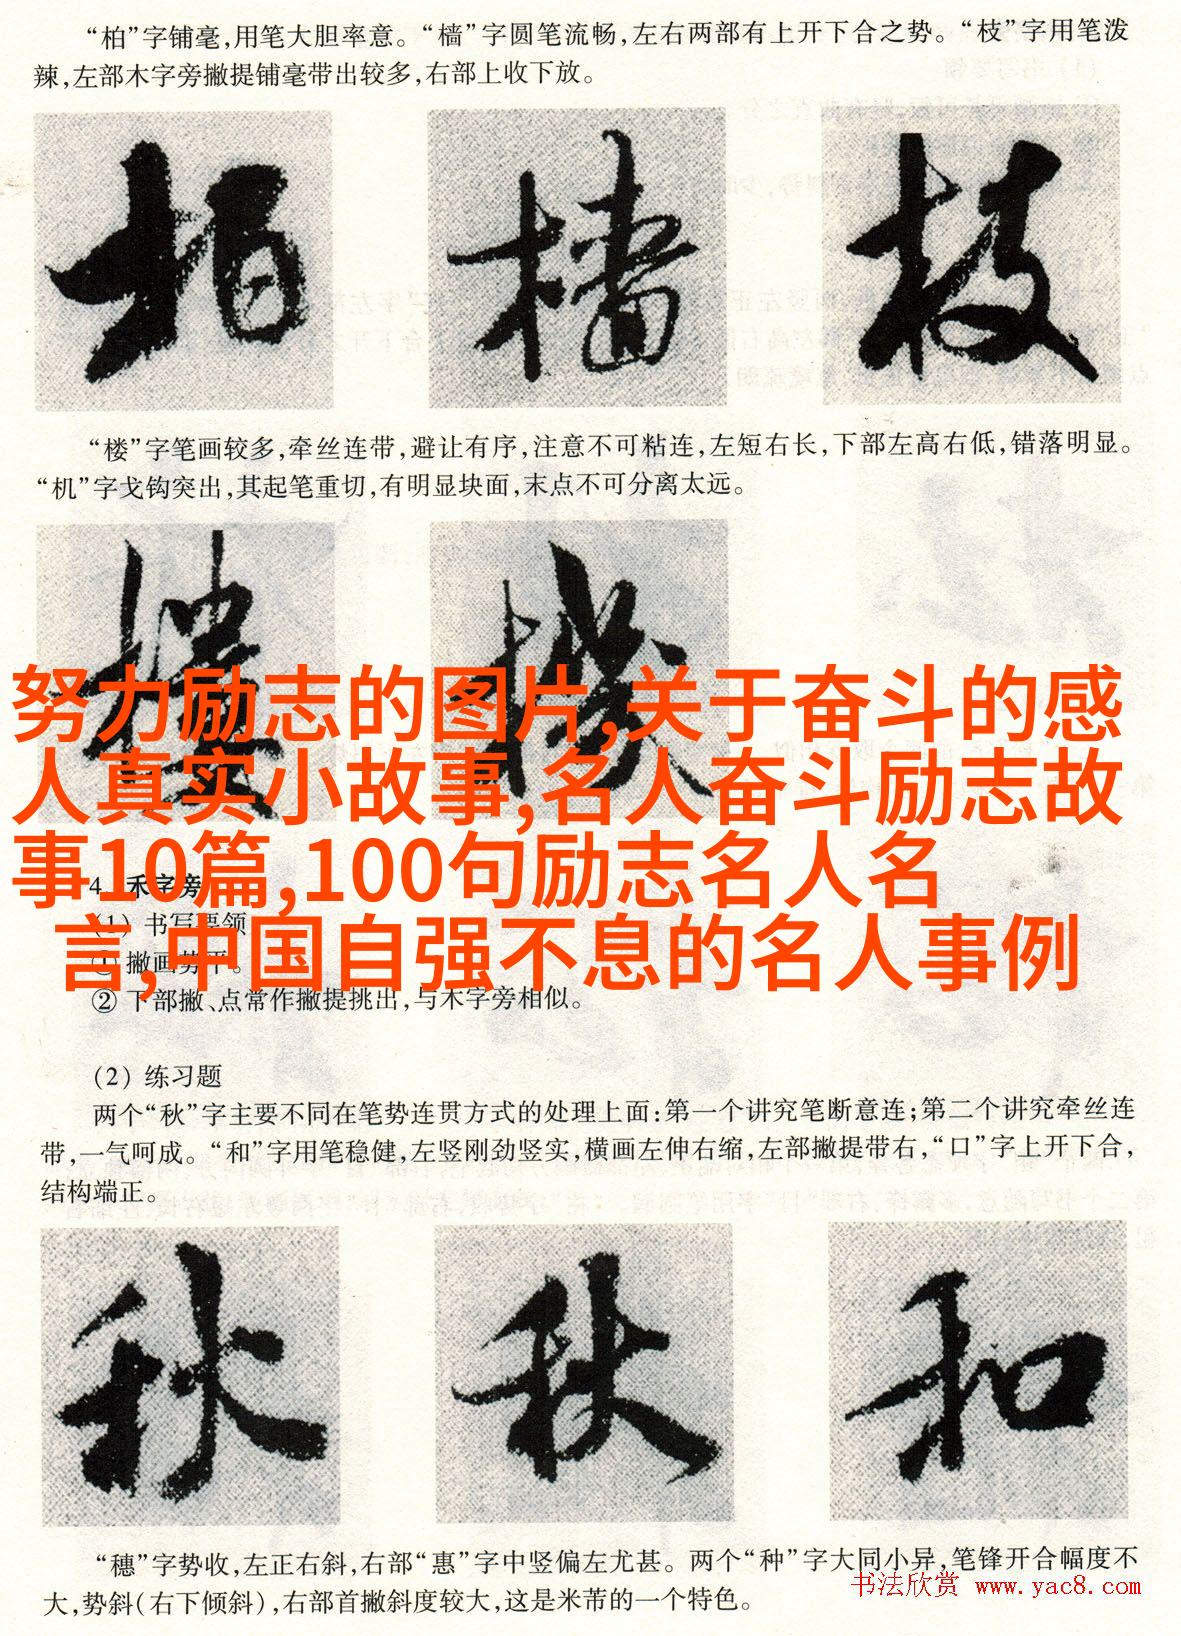 “柏”字铺毫,用笔大胆率意。“樯”字圆笔流畅,左右两部有上开下合之势。“枝”字用笔泼
辣,左部木字旁撇提铺毫带出较多,右部上收下放。
柏 樯 枝
“楼”字笔画较多,牵丝连带,避让有序,注意不可粘连,左短右长,下部左高右低,错落明显。
“机”字戈钩突出,其起笔重切,有明显块面,末点不可分离太远。
樓 機
努力励志的图片,关于奋斗的感
人真实小故事,名人奋斗励志故
事10篇,100句励志名人名
言,中国自强不息的名人事例
4. 禾字旁
(1) 书写要领
① 撇画势平。
② 下部撇、点常作撇提挑出,与木字旁相似。
(2) 练习题
两个“秋”字主要不同在笔势连贯方式的处理上面:第一个讲究笔断意连;第二个讲究牵丝连
带,一气呵成。“和”字用笔稳健,左竖刚劲竖实,横画左伸右缩,左部撇提带右,“口”字上开下合,
结构端正。
秋 秋 和
“穗”字势收,左正右斜,右部“惠”字中竖偏左尤甚。两个“种”字大同小异,笔锋开合幅度不
大,势斜(右下倾斜),右部首撇斜度较大,这是米芾的一个特色。
书法欣赏 www.yac8.com